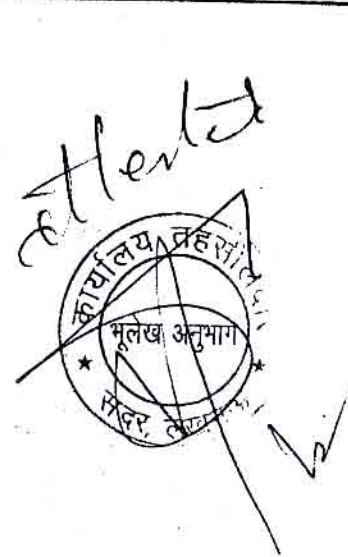 attested
कार्यालय तहसीलदार
भूलेख अनुभाग
सदर, लखनऊ